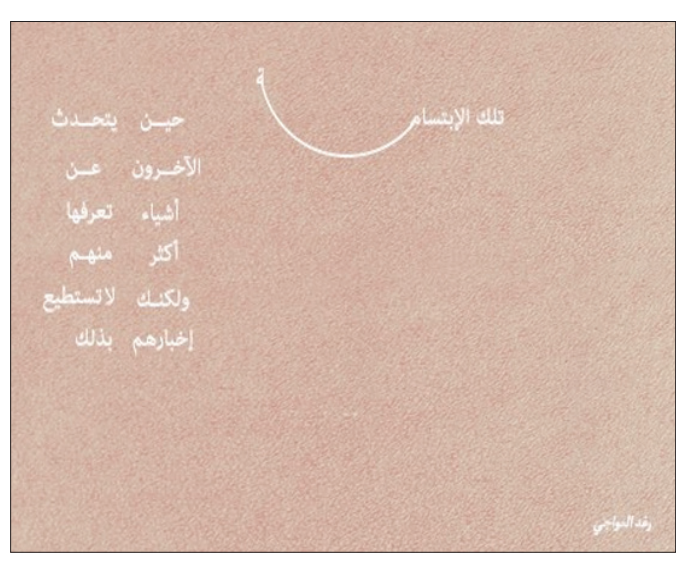 تلك الإبتسامة
حين يتحدث
الآخرون عن
أشياء تعرفها
أكثر منهم
ولكنك لاتستطيع
إخبارهم بذلك
رغد